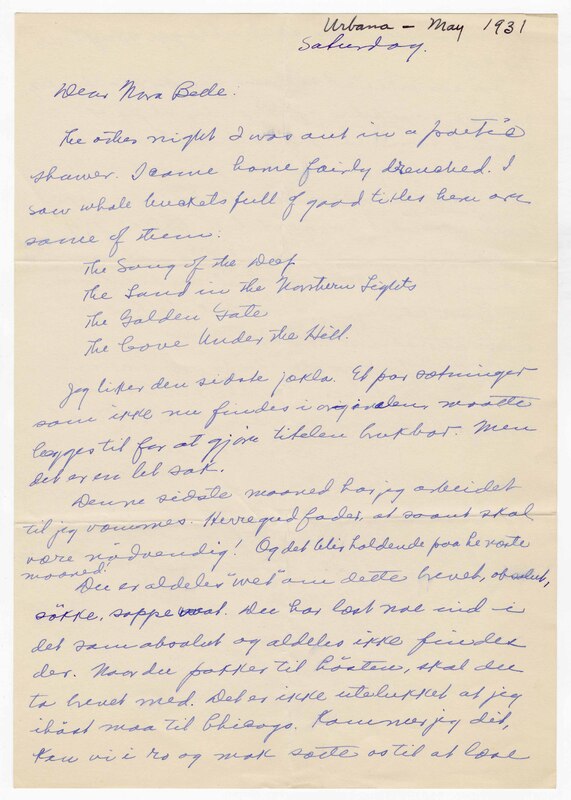 Urbana - May 1931
Saturday.
Dear Nora Bede:
The other night I was out in a poetic
shower. I came home fairly drenched. I
saw whole buckets full of good titles here are
some of them:
The Song of the Deep
The Land in the Northern Lights
The Golden Gate
The Cove Under the Hill.
Jeg liker den sidste jokla. Et par sætninger
som ikke nu findes i orginalen, maatte
lægges til for at gjøre titelen brukbar. Men
det er en let sak.
Denne sidste maaned har jeg arbeidet
til jeg væmmes. Herregud fader, at saant skal
være nödvendig! Og det blir holdende paa he næste
maaned!
Du er aldeles "wet" om dette brevet, absolut,
sökke, soppe wat. Du har læst noe ind i
det som absolut og aldeles ikke findes
der. Naar du pakker til hösten, skal du
ta brevet med. Det er ikke utelukket at jeg
ihöst maa til Chicago. Kommer jeg dit,
kan vi i ro og mak sætte os til at læse